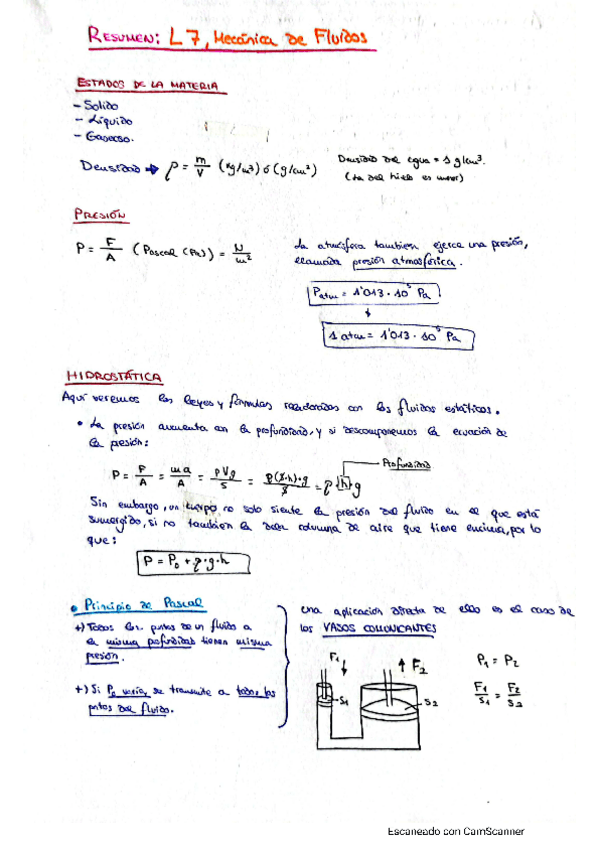 RESUMEN: L7, Mecánica de Fluidos
ESTADOS DE LA MATERIA
- Solido
- Líquido
- Gaseoso.
Densidad → ρ = m/V (kg/m³) ó (g/cm³)
Densidad del agua = 1 g/cm³.
(la del hielo es menor)
PRESIÓN
P = F/A (Pascal (Pa)) = N/m²
La atmósfera tambien ejerce una presión,
llamada presión atmosférica.
Patm = 1'013 · 10⁵ Pa
1 atm = 1'013 · 10⁵ Pa
HIDROSTÁTICA
Aquí veremos las leyes y fórmulas relacionadas con los fluidos estáticos.
• La presión aumenta con la profundidad, y si descomponemos la ecuación de
la presión:
Profundidad
P = F/A = ma/A = ρVg/S = ρ(S·h)·g/S = ρ·h·g
Sin embargo, un cuerpo no solo siente la presión del fluido en el que está
sumergido, si no tambien la de la columna de aire que tiene encima, por lo
que:
P = P₀ + ρ·g·h
• Principio de Pascal
+) Todos los puntos de un fluido a
la misma profundidad tienen misma
presión.
+) Si P₀ varía, se transmite a todos los
ptos del fluido.
Una aplicación directa de ello es el caso de
los VASOS COMUNICANTES
F₁
F₂
S₁
S₂
P₁ = P₂
F₁/S₁ = F₂/S₂
Escaneado con CamScanner